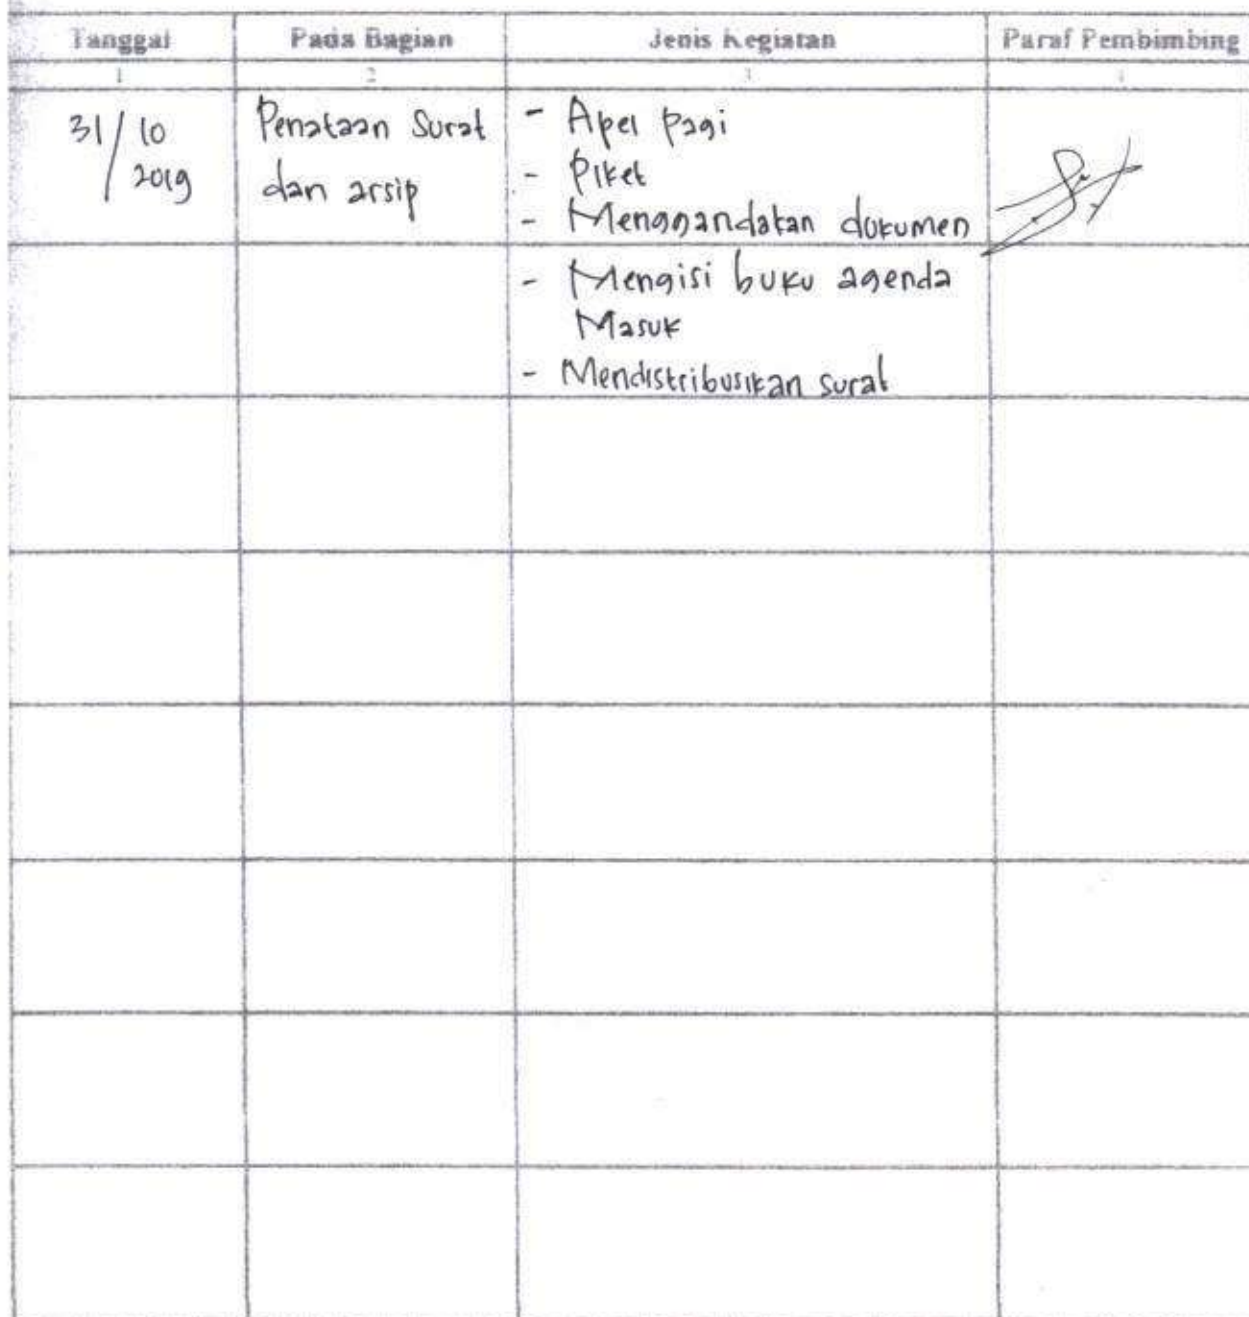 Tanggal Pada Bagian Jenis Kegiatan Paraf Pembimbing
1 2 3 4
31/10 2019 Penataan Surat - Apel pagi
dan arsip - Piket
- Menggandakan dokumen
- Mengisi buku agenda
Masuk
- Mendistribusikan surat